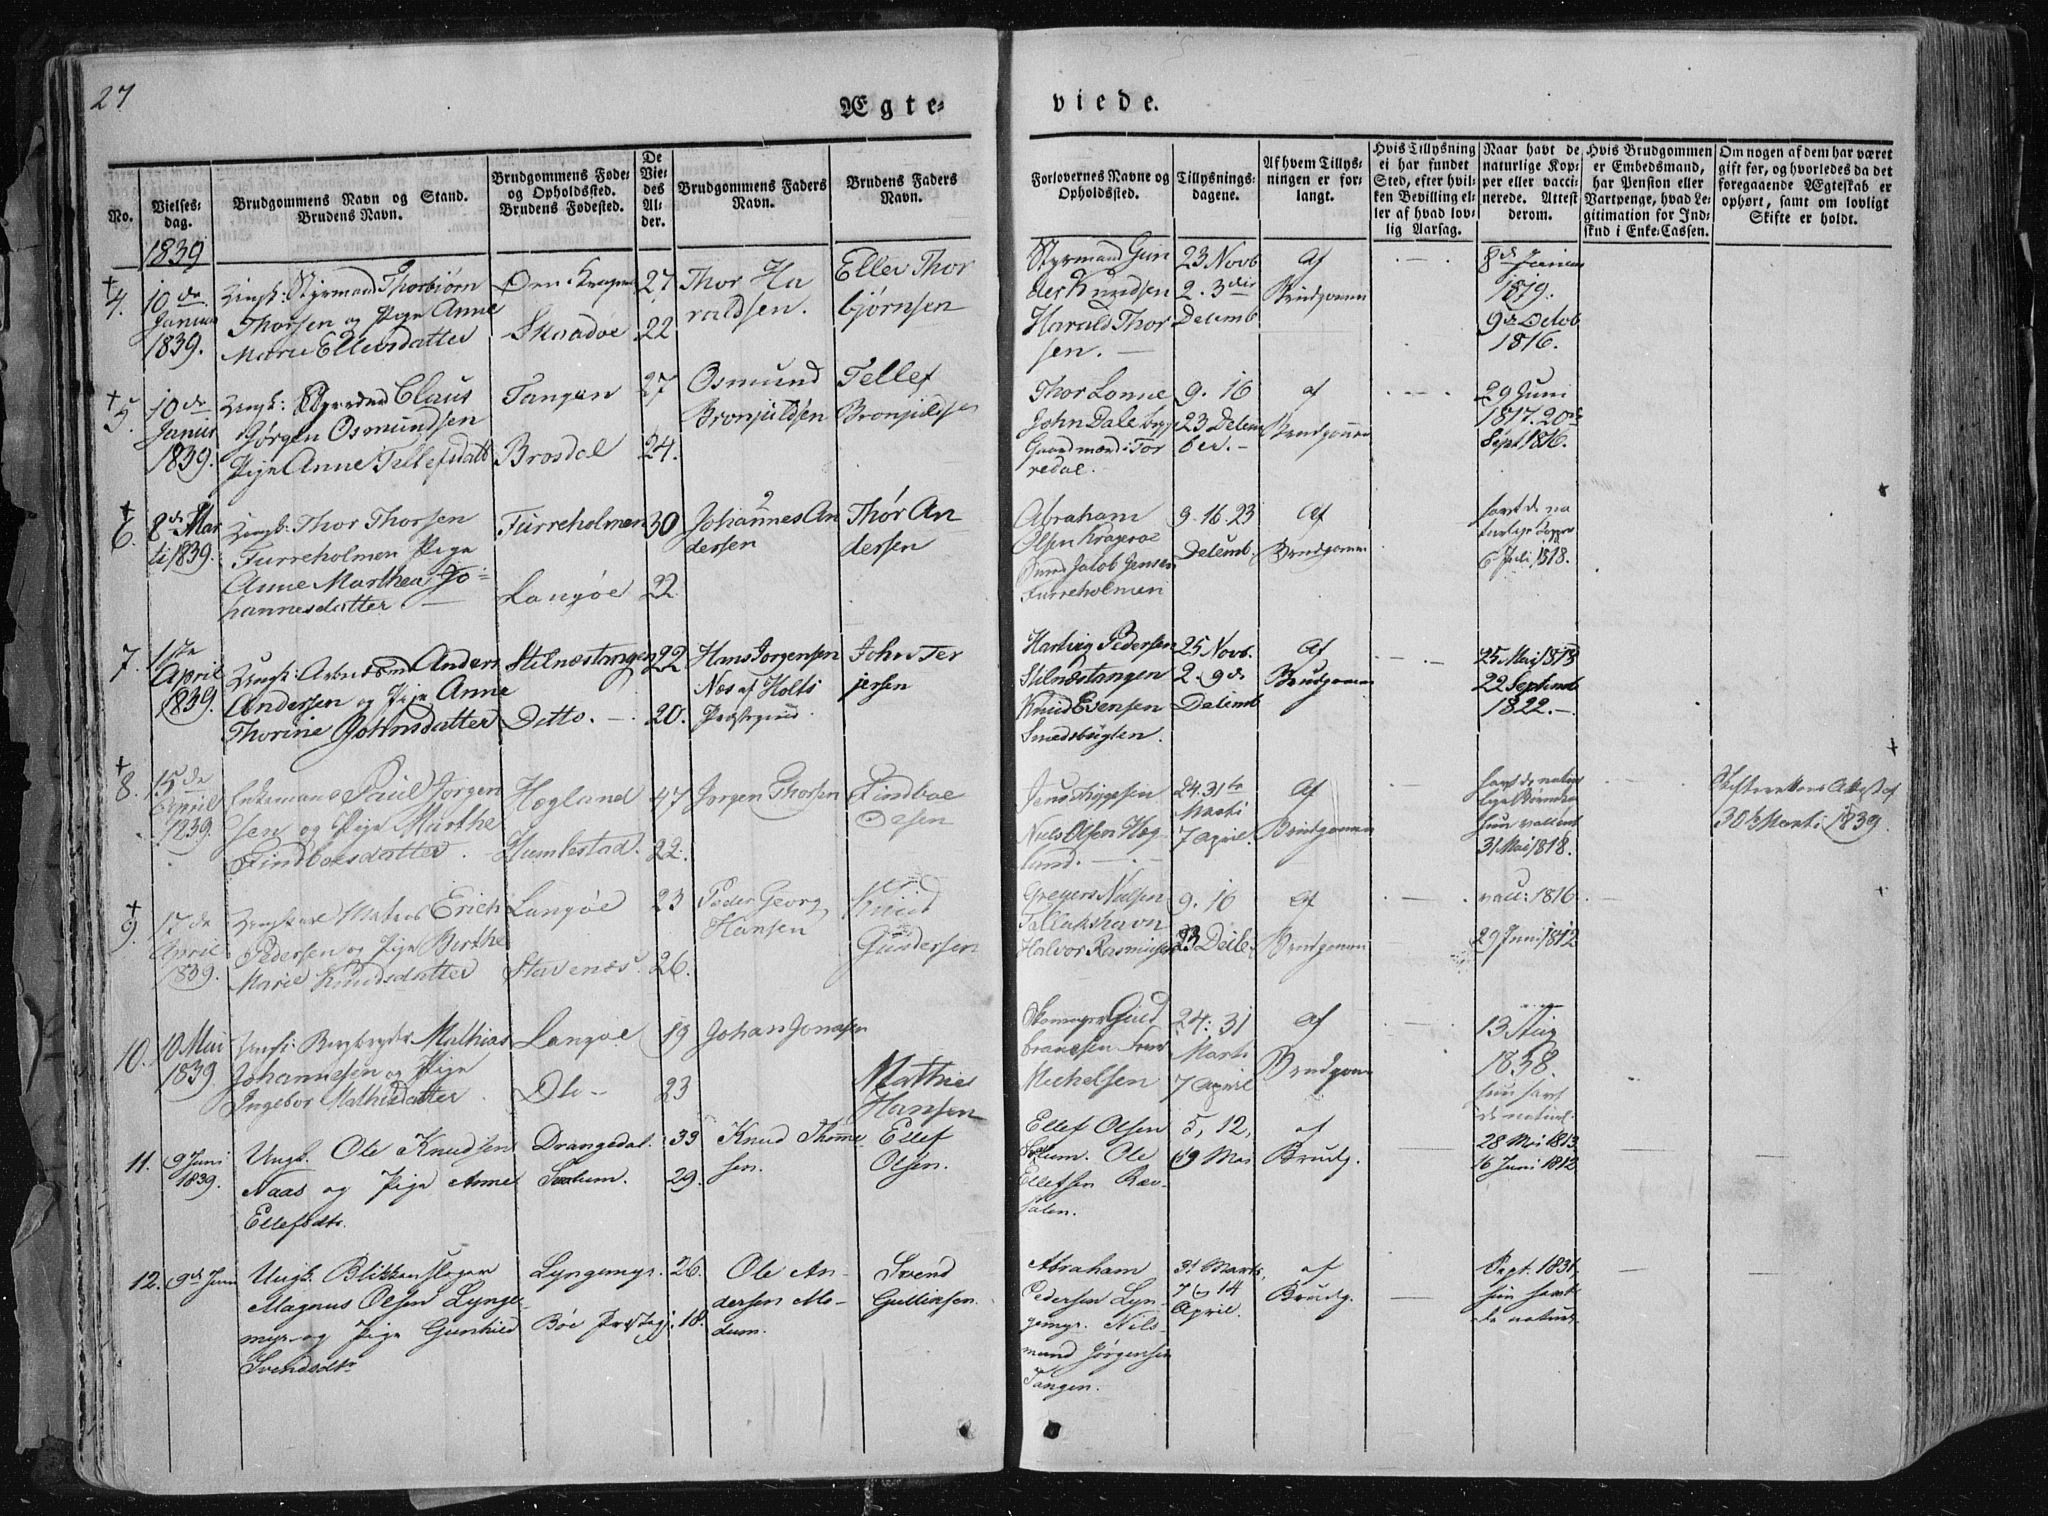 27
Ægte-
viede.
No.
Vielses-
dag.
Brudgommens Navn og Stand.
Brudens Navn.
Brudgommens Føde-
og Opholdssted.
Brudens Fødested.
De
Vie-
des
Al-
der.
Brudgommens Faders
Navn.
Brudens Faders
Navn.
Forlovernes Navne og
Opholdssted.
Tillysnings-
dagene.
Af hvem Tillys-
ningen er for-
langt.
Hvis Tillysning
ei har fundet
Sted, efter hvil-
ken Bevilling el-
ler af hvad lov-
lig Aarsag.
Naar havt de
naturlige Kop-
per eller vacci-
nerede. Attest
derom.
Hvis Brudgommen
er Embedsmand,
har Pension eller
Vartpenge, hvad Le-
gitimation for Ind-
skud i Enke-Cassen.
Om nogen af dem har været
gift før, og hvorledes da det
foregaaende Ægteskab er
ophørt, samt om lovligt
Skifte er holdt.
1839
4.
10de
Januar
1839.
Styrmand Thorbiørn
Thorsen og Pige Anne
Marie Ellevsdatter
Skaadøe
27
22
Thor Ha
raldsen.
Ellev Thor
bjørnsen
Styrmand Gun
der Knudsen
Harald Thor
sen.
23 Novb
2. 3die
Decemb
Af
Brudgommen
1819.
9de Octob
1816.
5.
10de
Januar
1839.
Claus
Jørgen Osmundsen
Pige Anne Tellefsdatt
Tangen
Brosdal
27
24.
Osmund
Tellef
Thor Lonne
John Dale
Gaardmænd i Tor
redal.
9. 16
23 Decem
ber.
af
Brudgommen
29 Juni
1817. 20de
Sept 1816.
6.
8de Mar
ti 1839.
Thor Thorsen
Furreholmen Pige
Anne Marthea Jo-
hannesdatter
Furreholmen
Langøe
30
22
Johannes An
dersen
Thor An
dersen
Abraham
Olsen Kragerøe
Jacob Jensen
Furreholmen
9. 16. 23
Decemb.
Af
Brudgommen
havt de na
turlige
6 Juli 1818.
7.
1ste
April
1839.
Anders
Andersen og Pige Anne
Thorine Johnsdatter
Stilnæstangen
Ditto.
22
20.
Hans Jørgensen
Næs af Holts
Præstegield.
John Ter
jersen
Hartvig Pedersen
Stilnæstangen
Knud Evensen
Smedsbugten.
25 Novb.
2. 9de
Decemb
Af
Brudgommen
25 Mai 1818
22 Septemb
1822.
8.
15de
April
1839.
Enkemand Paul Jørgen
sen og Pige Marthe
Findboesdatter.
Høgland
Humlestad.
47
22.
Jørgen Thorsen
Findboe
Olsen
Jens Aggesen
Niels Olsen Høg
land.
24. 31te
Marti
7 April.
Af
Brudgommen
havt de natur
lige
hun vaccin
31 Mai 1818.
Skifterettens Attest af
30 Marti 1839.
9.
17de
April
1839.
Erich
Pedersen og Pige Birthe
Marie Knudsdatter
Langøe
Stavenæs.
23
26.
Peder Georg
Hansen
Knud
Gundersen
Gregers Nielsen
Tallakshavn
Halvor Rasmussen
9. 16
23
Af
Brudgommen
vacc: 1816
29 Juni 1812
10.
10 Mai
1839
Mathias
Johannesen og Pige
Ingebor Mathisdatter.
Langøe
Dto
19
23
Johan Jonasen
Mathies
Hansen
Gud
brandsen
Michelsen
24: 31
Marti
7 April
Af
Brudgommen
13 Aug
1838.
hun havt
de naturl.
11.
9 Juni
1839.
Ungk. Ole Knudsen
Naas og Pige Anne
Ellefsdtr.
Drangedal.
33
29.
Knud Thome-
sen.
Ellef
Olsen.
Ellef Olsen
Ole
Ellefsen Røv-
dalen.
5, 12,
19 Mai
af
Brudg.
28 Mai 1813.
16 Juni 1812
12.
9de Juni
Ungk. Blikkenslager
Magnus Olsen Lynge-
myr og Pige Gunhild
Svendsdtr
Lyngemyr.
Bøe Præstegj.
26.
18.
Ole An-
dersen Mo-
dum.
Svend
Gulliksen.
Abraham
Pedersen Lyn-
gemyr. Nils-
mund Jørgensen
Tangen.
31 Marts,
7 og 14
April.
af
Brudg.
1831,
hun havt
de naturl.